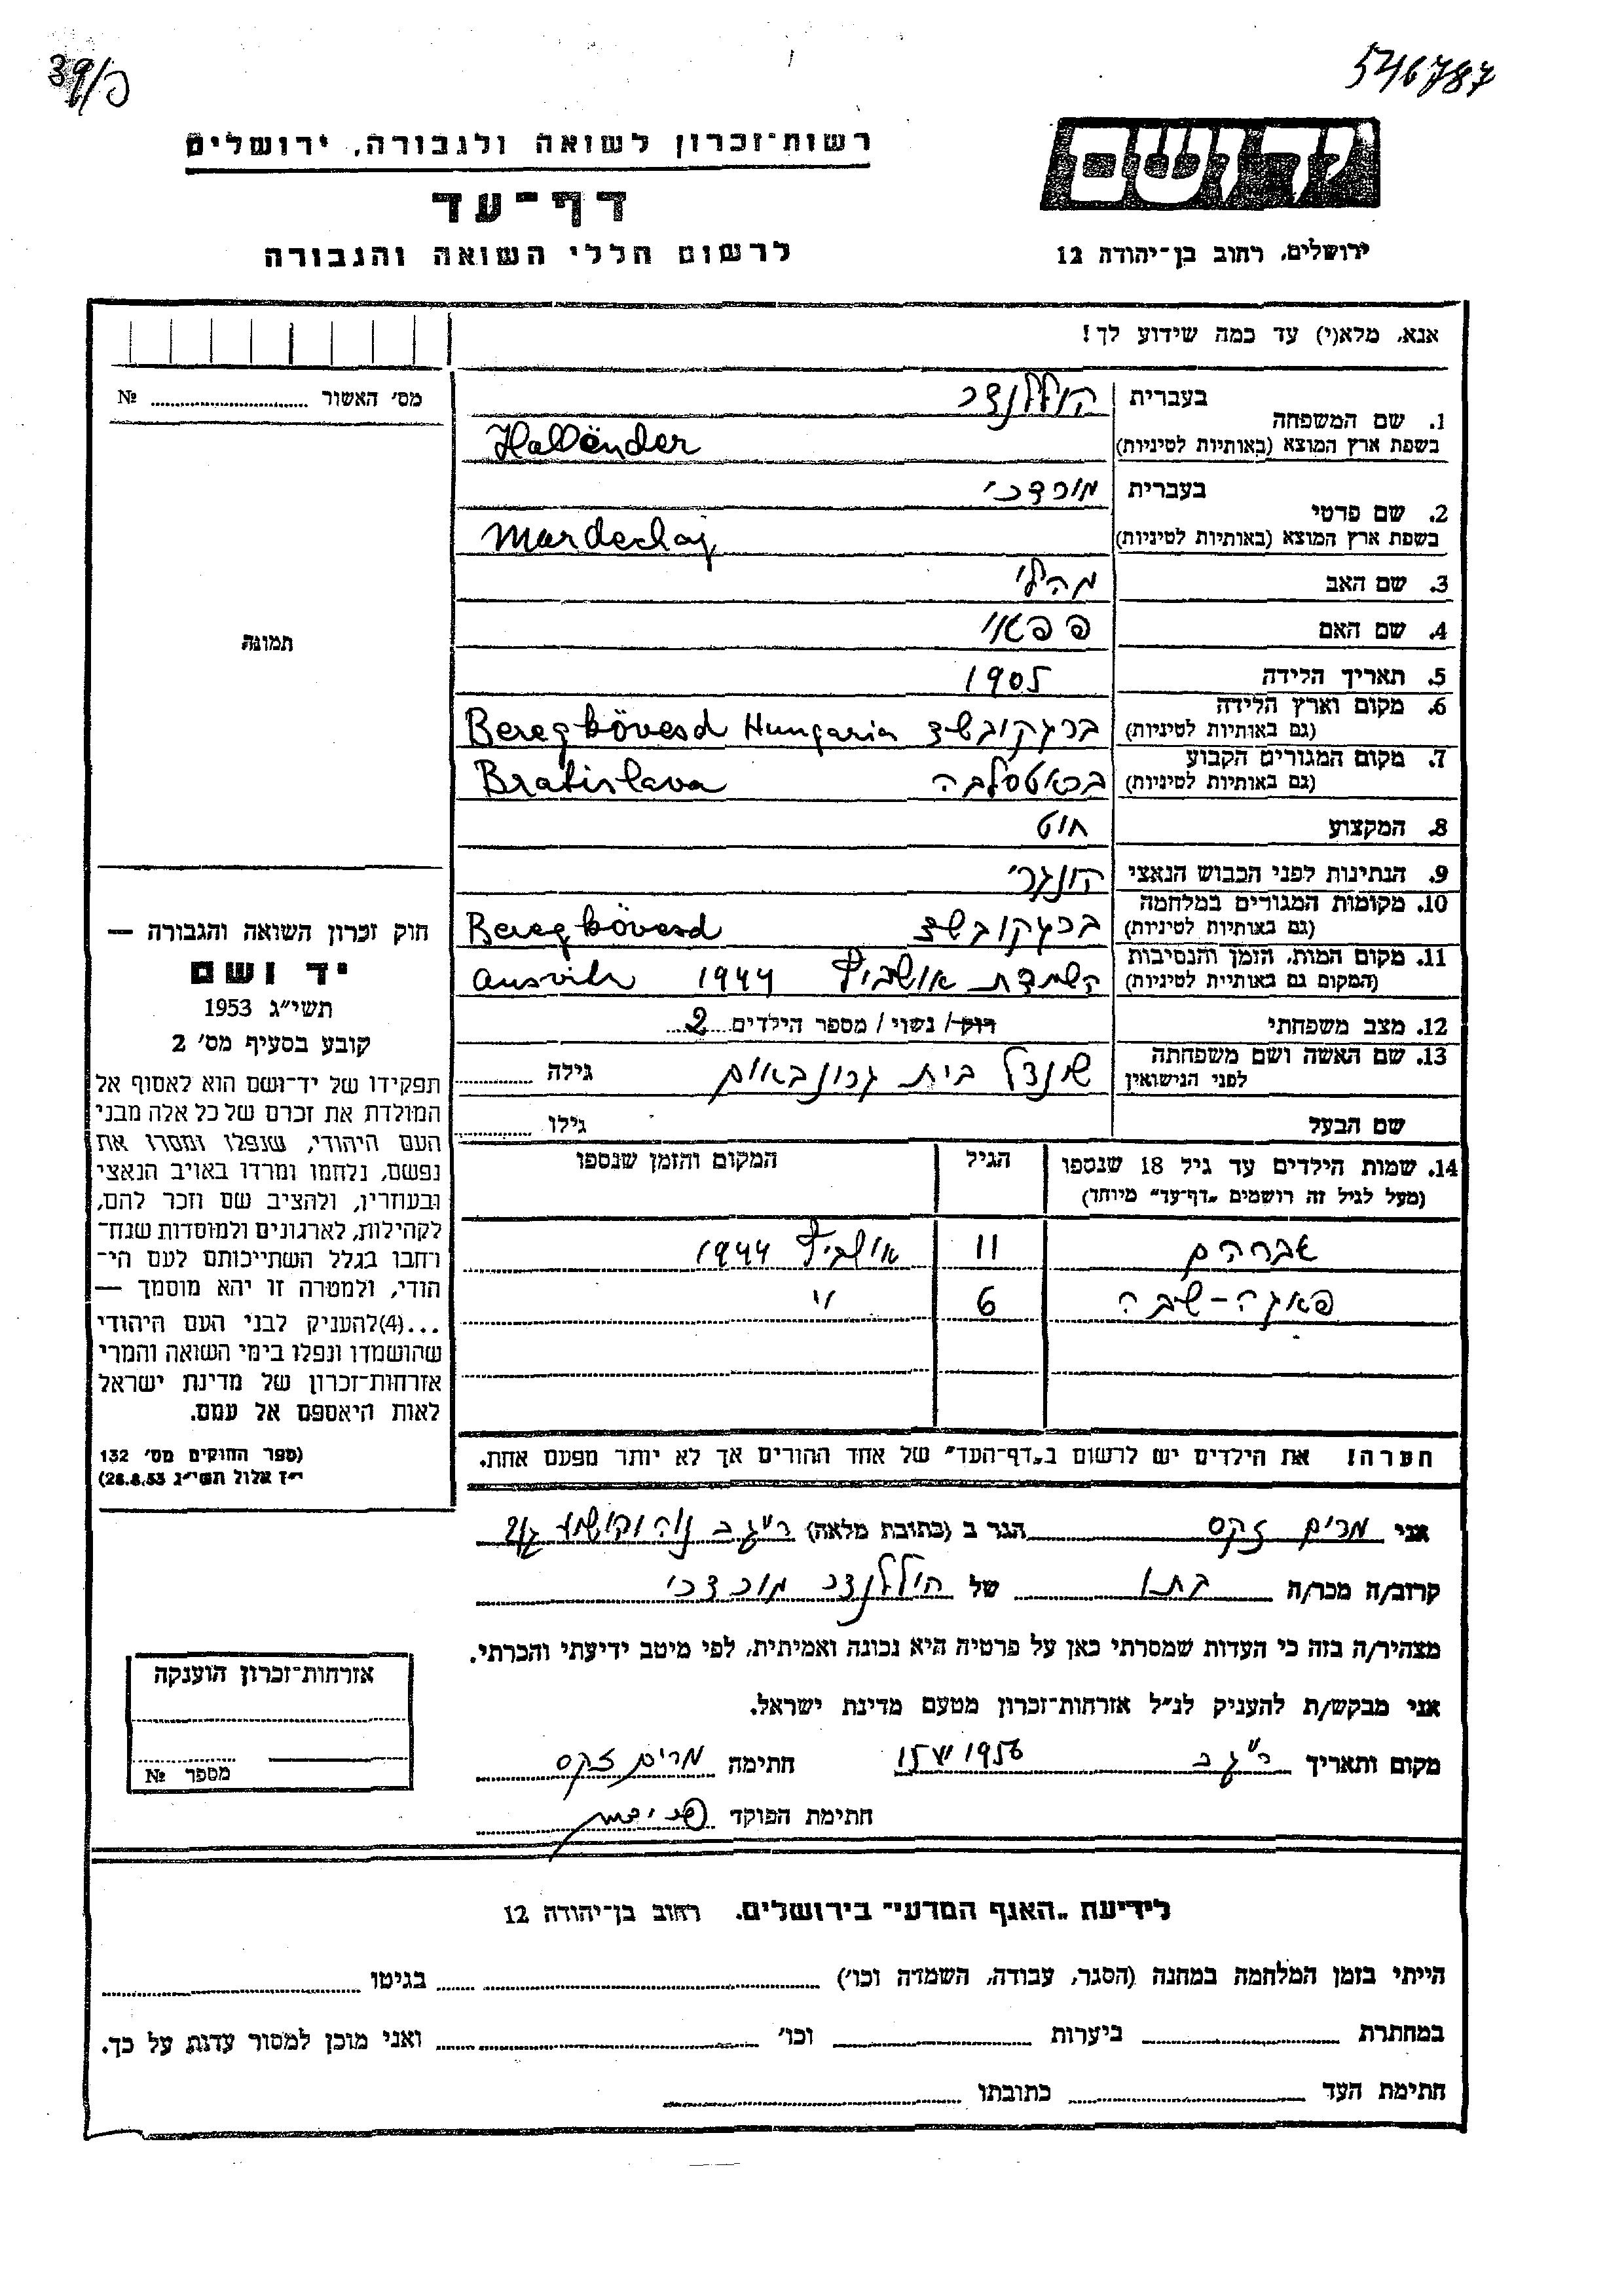 39/ק
546787
יד ושם
ירושלים, רחוב בן־יהודה 12
רשות־זכרון לשואה ולגבורה, ירושלים
דף־עד
לרשום חללי השואה והגבורה
אנא, מלא(י) עד כמה שידוע לך!
מס׳ האשור № 
תמונה
1. שם המשפחה בעברית הוללנדר
בשפת ארץ המוצא (באותיות לטיניות) Holländer
2. שם פרטי בעברית מורדכי
בשפת ארץ המוצא (באותיות לטיניות) Mordechaj
3. שם האב
4. שם האם
5. תאריך הלידה 1905
6. מקום וארץ הלידה (גם באותיות לטיניות) ברגקובשד Beregkövesd Hungaria
7. מקום המגורים הקבוע (גם באותיות לטיניות) בראטסלבה Bratislava
8. המקצוע חיט
9. הנתינות לפני הכבוש הנאצי הונגרי
10. מקומות המגורים במלחמה (גם באותיות לטיניות) ברגקובשד Beregkövesd
11. מקום המות, הזמן והנסיבות (המקום גם באותיות לטיניות) השמדת אושביץ 1944 Ausvitz
12. מצב משפחתי רוק/ נשוי/ מספר הילדים 2
13. שם האשה ושם משפחתה לפני הנישואין שינדל בית גרונבאום גילה
שם הבעל גילו
14. שמות הילדים עד גיל 18 שנספו
(מעל לגיל זה רושמים „דף־עד״ מיוחד)
הגיל
המקום והזמן שנספו
אברהם 11 אושביץ 1944
פאגה-שבה 6 "
הערה! את הילדים יש לרשום ב„דף־העד״ של אחד ההורים אך לא יותר מפעם אחת.
חוק זכרון השואה והגבורה —
יד ושם
תשי״ג 1953
קובע בסעיף מס׳ 2
תפקידו של יד־ושם הוא לאסוף אל
המולדת את זכרם של כל אלה מבני
העם היהודי, שנפלו ומסרו את
נפשם, נלחמו ומרדו באויב הנאצי
ובעוזריו, ולהציב שם וזכר להם,
לקהילות, לארגונים ולמוסדות שנח־
רחבו בגלל השתייכותם לעם הי־
הודי, ולמטרה זו יהא מוסמך —
...(4)להעניק לבני העם היהודי
שהושמדו ונפלו בימי השואה והמרי
אזרחות־זכרון של מדינת ישראל
לאות היאספם אל עמם.
(ספר החוקים מס׳ 132
י״ז אלול תשי״ג 28.8.53)
אני מרים זקס הגר ב (כתובת מלאה) ר"ג ב
קרוב/ה מכר/ה בתו של הוללנדר מורדכי
מצהיר/ה בזה כי העדות שמסרתי כאן על פרטיה היא נכונה ואמיתית, לפי מיטב ידיעתי והכרתי.
אני מבקש/ת להעניק לנ״ל אזרחות־זכרון מטעם מדינת ישראל.
מקום ותאריך ר"ג ב 15 VI 1956 חתימה מרים זקס
חתימת הפוקד
אזרחות־זכרון הוענקה
מספר №
לידיעת „האגף המדעי״ בירושלים, רחוב בן־יהודה 12
הייתי בזמן המלחמה במחנה (הסגר, עבודה, השמדה וכו׳) בגיטו
במחתרת ביערות וכו׳ ואני מוכן למסור עדות על כך.
חתימת העד כתובתו